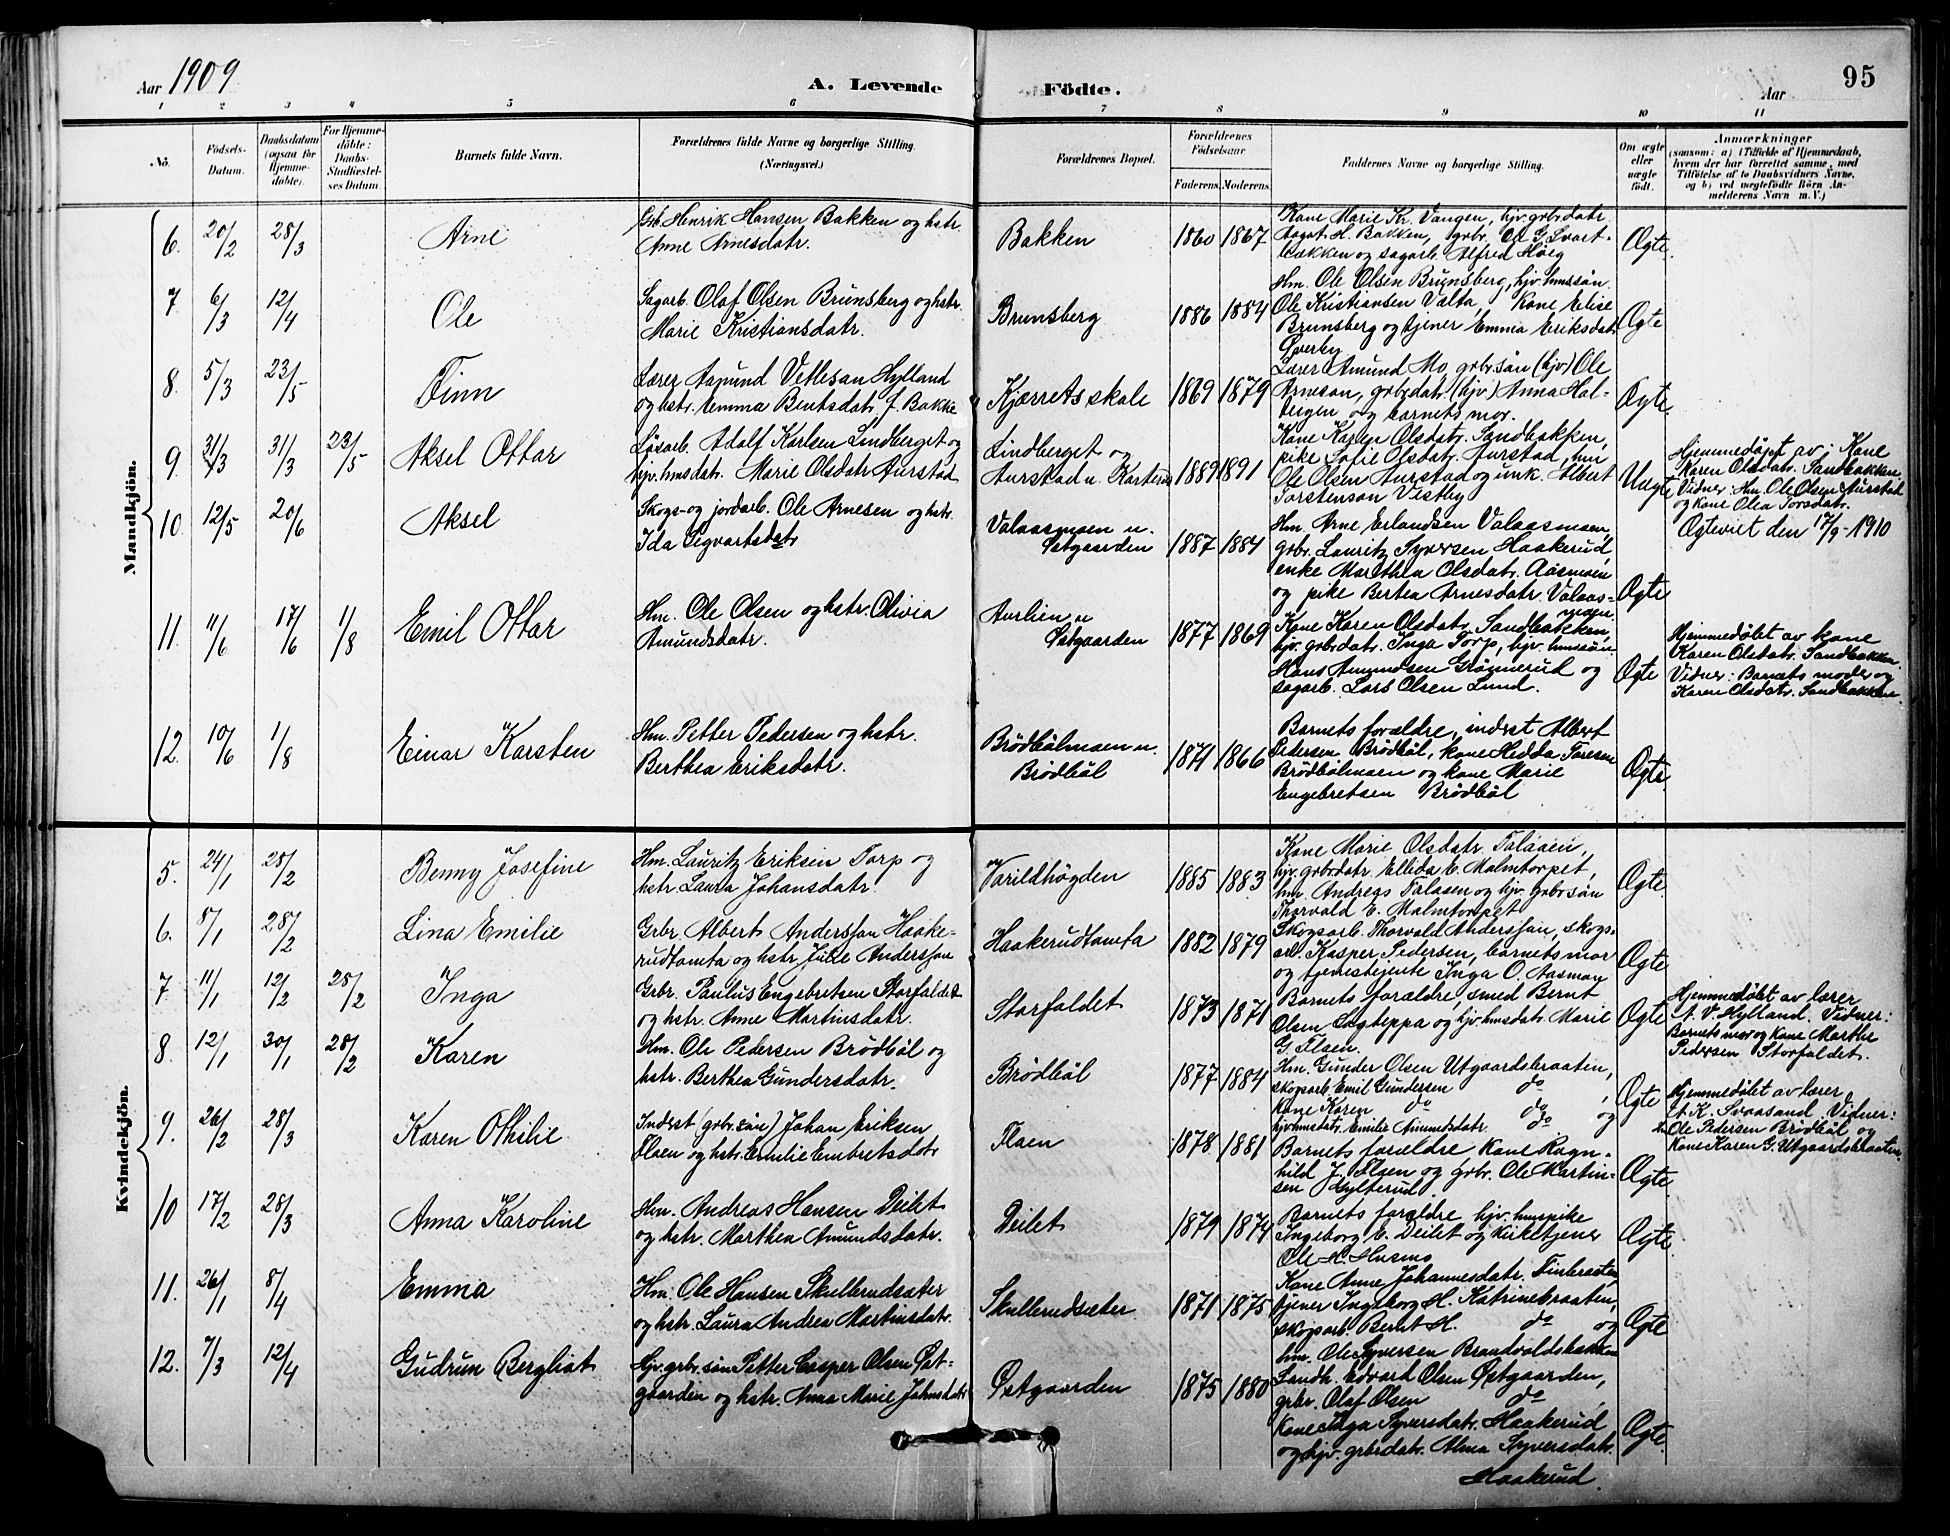 Aar 1909.
A. Levende
Födte.
Aar
95
1 2 3 4 5 6 7 8 9 10 11
No.
Födsels-
Datum.
Daabsdatum
(ogsaa for
Hjemme-
döbte).
For Hjemme-
döbte:
Daabs-
Stadfæstel-
ses Datum.
Barnets fulde Navn.
Forældrenes fulde Navne og borgerlige Stilling.
(Næringsvei.)
Forældrenes Bopæl.
Forældrenes
Födselsaar.
Faderens. Moderens.
Faddernes Navne og borgerlige Stilling.
Om ægte
eller
uægte
födt.
Anmærkninger
(saasom: a) i Tilfælde af Hjemmedaab,
hvem der har forrettet samme, med
Tilföielse af to Daabsvidners Navne.
og b) ved uægtefödte Börn An-
melderens Navn m. V.)
Mandkjön.
6. 20/2 28/3
Arne
Grb. Henrik Hansen Bakken og hstr.
Anne Arnesdatr.
Bakken
1860 1867
Kone Marie Kr. Vangen, hjv. grbr.datr.
Aagot H. Bakken, grbr. Ole G. Svart-
bækken og sagarb. Alfred Høeg
Ægte.
7 6/3 12/4
Ole
Sagarb. Olaf Olsen Brunsberg og hstr.
Marie Kristiansdatr.
Brunsberg
1886 1884
Hm. Ole Olsen Brunsberg, hjv. hmssøn
Ole Kristiansen Valta, kone Elise
Brunsberg og tjener Emma Eriksdatr.
Overby
Ægte
8. 5/3 23/5
Finn
Lærer Aamund Vetlesan Hylland
og hstr. Emma Berntsdatr. f. Bakke
Kjærrets skole
1869 1879
Lærer Amund Mo, grbr.søn (hjv.) Ole
Arneson, grbr.datr. (hjv.) Anna Hal-
bergen og barnets mor.
Ægte
9. 31/3 31/3 23/5
Aksel Ottar
Løsarb. Adolf Karlsen Lindberget og
hjv. hmsdatr. Marie Olsdatr. Aurstad
Lindberget og
Aurstad u. Karterud
1889 1891
Kone Karen Olsdatr. Sandbakken,
pike Sofie Olsdatr. Aurstad, hm.
Ole Olsen Aurstad og unk. Albert
Torstenson Vestby
Uægte
Hjemmedøpt av: Kone
Karen Olsdatr. Sandbakken
Vidner: Hm. Ole Olsen Aurstad
og kone Olea Torsdatr.
Ægteviet den 17/9-1910
10. 12/5 20/6
Aksel
Skogs- og jordarb. Ole Arnesen og hstr.
Ida Sigvartsdatr
Valaasmoen u.
Østgaarden
1887 1884
Hm. Arne Erlandsen Valaasmoen,
grbr. Lauritz Syversen Haakerud,
enke Marthea Olsdatr. Aasmoen
og pike Berthea Arnesdatr. Valaas-
moen.
Ægte
11. 11/6 17/6 1/8
Emil Ottar
Hm. Ole Olsen og hstr. Olivia
Amundsdatr.
Aurlien u
Østgaarden
1877 1869
Kone Karen Olsdatr. Sandbakken,
hjv. grbrdatr. Inga Torp, hjv. hmssøn
Hans Amundsen Grønnerud og
sagarb. Lars Olsen Lund.
Ægte
Hjemmedøbt av kone
Karen Olsdatr. Sandbakken.
Vidner: Barnets moder og
Karen Olsdatr. Sandbakken
12. 10/6 1/8
Einar Karsten
Hm. Petter Pedersen og hstr.
Berthea Eriksdatr.
Brödbölmoen u.
Brödböl
1871 1866
Barnets forældre, inderst Albert
Pedersen Brödböl, kone Hedda Toresen
Brödbölmoen og kone Marie
Engebretsen Brödböl
Ægte
Kvindekjön.
5. 24/1 28/2
Benny Josefine
Hm. Lauritz Eriksen Torp og
hstr. Laura Johansdatr.
Varildhögden
1885 1883
Kone Marie Olsdatr. Talaaen,
hjv. grbrdatr. Ellida E. Malmtorpet,
hm. Andreas Talasen og hjv. grbrsøn
Thorvald E. Malmtorpet
Ægte
6. 8/1 28/2
Lina Emilie
Grbr. Albert Anderssøn Haake-
rudtomta og hstr. Julie Anderssøn
Haakerudtomta
1882 1879
Skogsarb. Thorvald Anderssøn, skogs-
arb. Kasper Pedersen, barnets mor
og tjenestejente Inga O. Aasmoen
Ægte
7 11/1 12/2 28/2
Inga
Grbr. Paulus Engebretsen Storfaldet
og hstr. Anne Martinsdatr.
Storfaldet
1873 1871
Barnets forældre, smed Bernt
Olsen Sagteppa og hjv. hmsdatr. Marie
G. Flaen.
Ægte
Hjemmedøbt av lærer
A. V. Hylland. Vidner:
Barnets mor og kone Marthe
Pedersen Storfaldet.
8. 12/1 30/1 28/2
Karen
Hm. Ole Pedersen Brödböl og
hstr. Berthea Gundersdatr.
Brödböl
1877 1884
Hm. Gunder Olsen Utgaardsbraaten,
skogsarb. Emil Gundersen do,
kone Karen do do og
hjv. hmsdatr. Emilie Amundsdatr. do.
Ægte
Hjemmedøbt av lærer
A. K. Svaasand. Vidner:
Ole Pedersen Brödböl og
Kone Karen G. Utgaardsbraaten.
9. 26/2 28/3
Karen Othilie
Inderst (grbr.søn) Johan Eriksen
Flaen og hstr. Emilie Embretsdatr
Flaen
1878 1881
Barnets forældre kone Ragn-
hild J. Flaen og grbr. Ole Martin-
sen Hylterud.
Ægte
10 17/2 28/3
Anna Karoline
Hm. Andreas Hansen Deilet
og hstr. Marthea Amundsdatr.
Deilet
1879 1874
Barnets forældre hjv. hmspike
Ingeborg E. Deilet og kirketjener
Ole H. Husmo
Ægte
11. 26/1 8/4
Emma
Hm. Ole Hansen Skullerudsæter
og hstr. Laura Andrea Martinsdatr.
Skullerudsæter
1871 1875
Kone Anne Johannesdatr. Finbraaten,
tjener Ingeborg H. Katrinebraaten,
skogsarb. Bernt H. do og
hm. Ole Syversen Brandvoldsbakken
Ægte
12. 7/3 12/4
Gudrun Bergliot
Hjv. grbr.søn Petter Casper Olsen Øst-
gaarden og hstr. Anna Marie Johnsdatr
Østgaarden
1875 1880
Landh. Edvard Olsen Østgaarden,
grbr. Olaf Olsen do,
kone Inga Syversdatr. Haakerud
og hjv. grbrdatr. Alma Syversdatr.
Haakerud.
Ægte